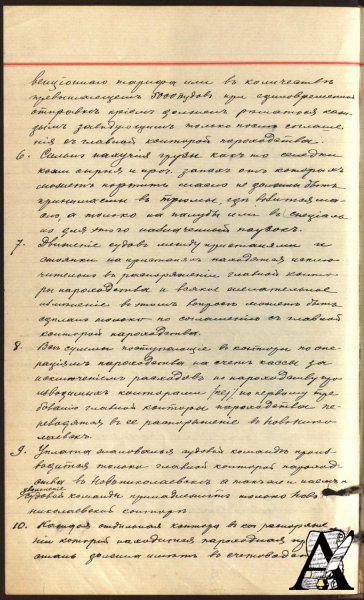 венціоннаго тарифа или въ количествѣ
превышающемъ 5000 пудовъ при единовременной
отправкѣ пріемъ должны
завѣдующимъ только послѣ соглаше-
нія съ главной конторой пароходства.
6. Сильно пахучія грузы какъ то селедки
кожи сырыя и проч. запахъ отъ которыхъ
можетъ портить масло не должны быть
принимаемы въ трюмы, гдѣ возится мас-
ло, а только на палубы или въ спеціаль-
но для этого назначенный паузокъ.
7. Движеніе судовъ между пристанями и
стоянки на пристаняхъ находятся исклю-
чительно въ распоряженіи главной конто-
ры пароходства и всякое желательное
измѣненіе въ этомъ вопросѣ можетъ быть
сдѣлано только по соглашенію съ главной
конторой пароходства.
8. Всѣ суммы поступающіе въ конторы по опе-
раціямъ пароходства на счетъ кассы за
исключеніемъ расходовъ по пароходству про-
изводимыхъ конторами по первому тре-
бованію главной конторы пароходства пе-
реводятся въ ее распоряженіе въ Новонико-
лаевскъ.
9. Уплата жалованья судовой командѣ произ-
водится только главной конторой пароход-
ства въ Новониколаевскѣ а также и наемъ и
увольненіе
судовой команды принадлежитъ только Ново-
николаевской конторѣ
10. Каждая отдѣльная контора въ распоряже-
ніи которой находится пароходная при-
стань должна имѣть въ